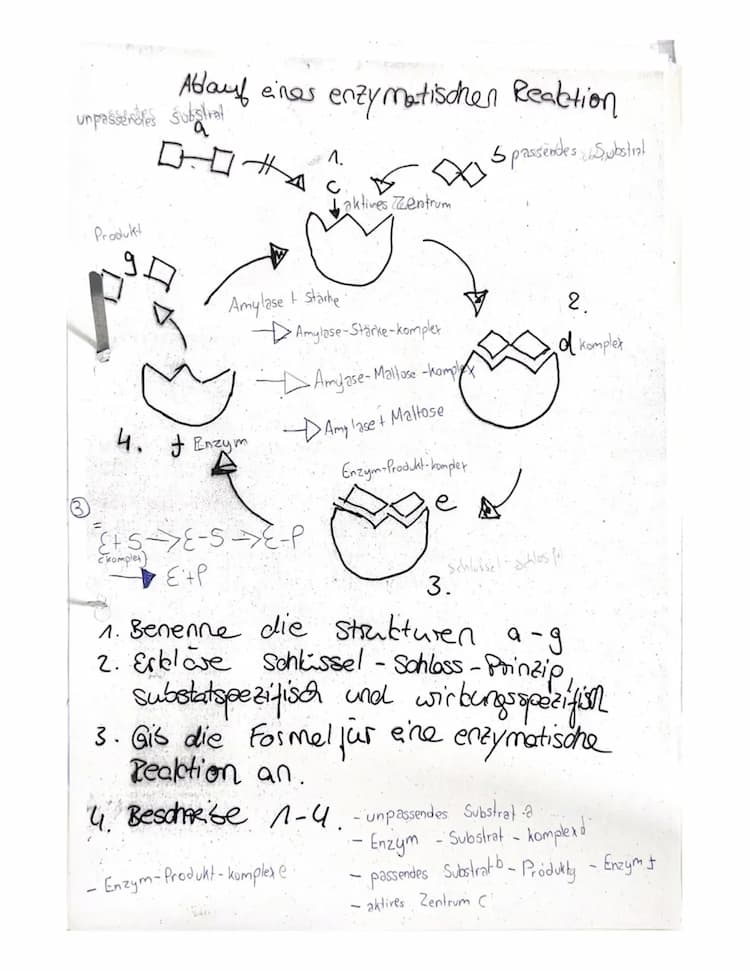 Ablauf eines enzymatischen Reaktion
unpassendes Substrat
a
1.
c
aktives Zentrum
b passendes Substrat
Produkt
g
Amylase + Stärke
Amylase-Stärke-komplex
Amylase-Maltose-komplex
Amylase + Maltose
2.
d komplex
4. f Enzym
Enzym-Produkt-komplex
e
3.
Schlüssel-Schloss
③
= E+S → E-S → E-P
(komplex)
→ E+P
1. Benenne die Strukturen a-g
2. Erkläre Schlüssel-Schloss-Prinzip,
substatspezifisch und wirkungsspezifisch
3. Gib die Formel für eine enzymatische
Reaktion an.
4. Beschreibe 1-4.
- unpassendes Substrat a
- Enzym - Substrat - komplex d
- passendes Substrat b - Produkt g - Enzym f
- aktives Zentrum c
- Enzym-Produkt-komplex e